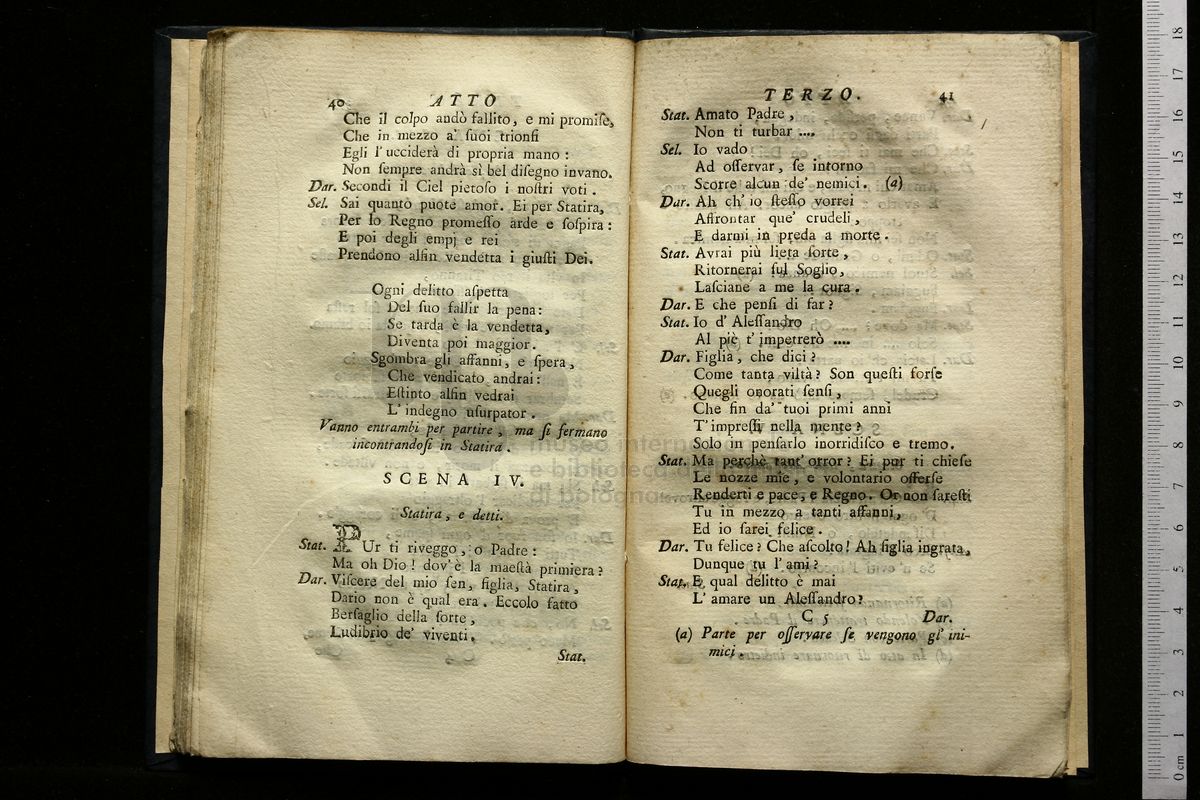 40 ATTO
Che il colpo andò fallito, e mi promiſe,
Che in mezzo a' ſuoi trionfi
Egli l'ucciderà di propria mano:
Non ſempre andrà sì bel diſegno invano.
Dar. Secondi il Ciel pietoſo i noſtri voti.
Sel. Sai quanto puote amor. Ei per Statira,
Per lo Regno promeſſo arde e ſoſpira:
E poi degli empj e rei
Prendono alfin vendetta i giuſti Dei.
Ogni delitto aſpetta
Del ſuo fallir la pena:
Se tarda è la vendetta,
Diventa poi maggior.
Sgombra gli affanni, e ſpera,
Che vendicato andrai:
Eſtinto alfin vedrai
L'indegno uſurpator.
Vanno entrambi per partire, ma ſi fermano
incontrandoſi in Statira.
SCENA IV.
Statira, e detti.
Stat. PUr ti riveggo, o Padre:
Ma oh Dio! dov'è la maeſtà primiera?
Dar. Viſcere del mio ſen, figlia, Statira,
Dario non è qual era. Eccolo fatto
Berſaglio della ſorte,
Ludibrio de' viventi.
Stat.
TERZO. 41
Stat. Amato Padre,
Non ti turbar ....
Sel. Io vado
Ad oſſervar, ſe intorno
Scorre alcun de' nemici. (a)
Dar. Ah ch'io ſteſſo vorrei
Affrontar que' crudeli,
E darmi in preda a morte.
Stat. Avrai più lieta ſorte,
Ritornerai ſul Soglio,
Laſciane a me la cura.
Dar. E che penſi di far?
Stat. Io d'Aleſſandro
Al piè t'impetrerò ....
Dar. Figlia, che dici?
Come tanta viltà? Son queſti forſe
Quegli onorati ſenſi,
Che fin da' tuoi primi anni
T'impreſſi nella mente?
Solo in penſarlo inorridiſco e tremo.
Stat. Ma perchè tant'orror? Ei pur ti chieſe
Le nozze mie, e volontario offerſe
Renderti e pace, e Regno. Or non ſareſti
Tu in mezzo a tanti affanni,
Ed io ſarei felice.
Dar. Tu felice? Che aſcolto! Ah figlia ingrata,
Dunque tu l'ami?
Stat. E qual delitto è mai
L'amare un Aleſſandro?
C 5 Dar.
(a) Parte per oſſervare ſe vengono gl'ini-
mici.